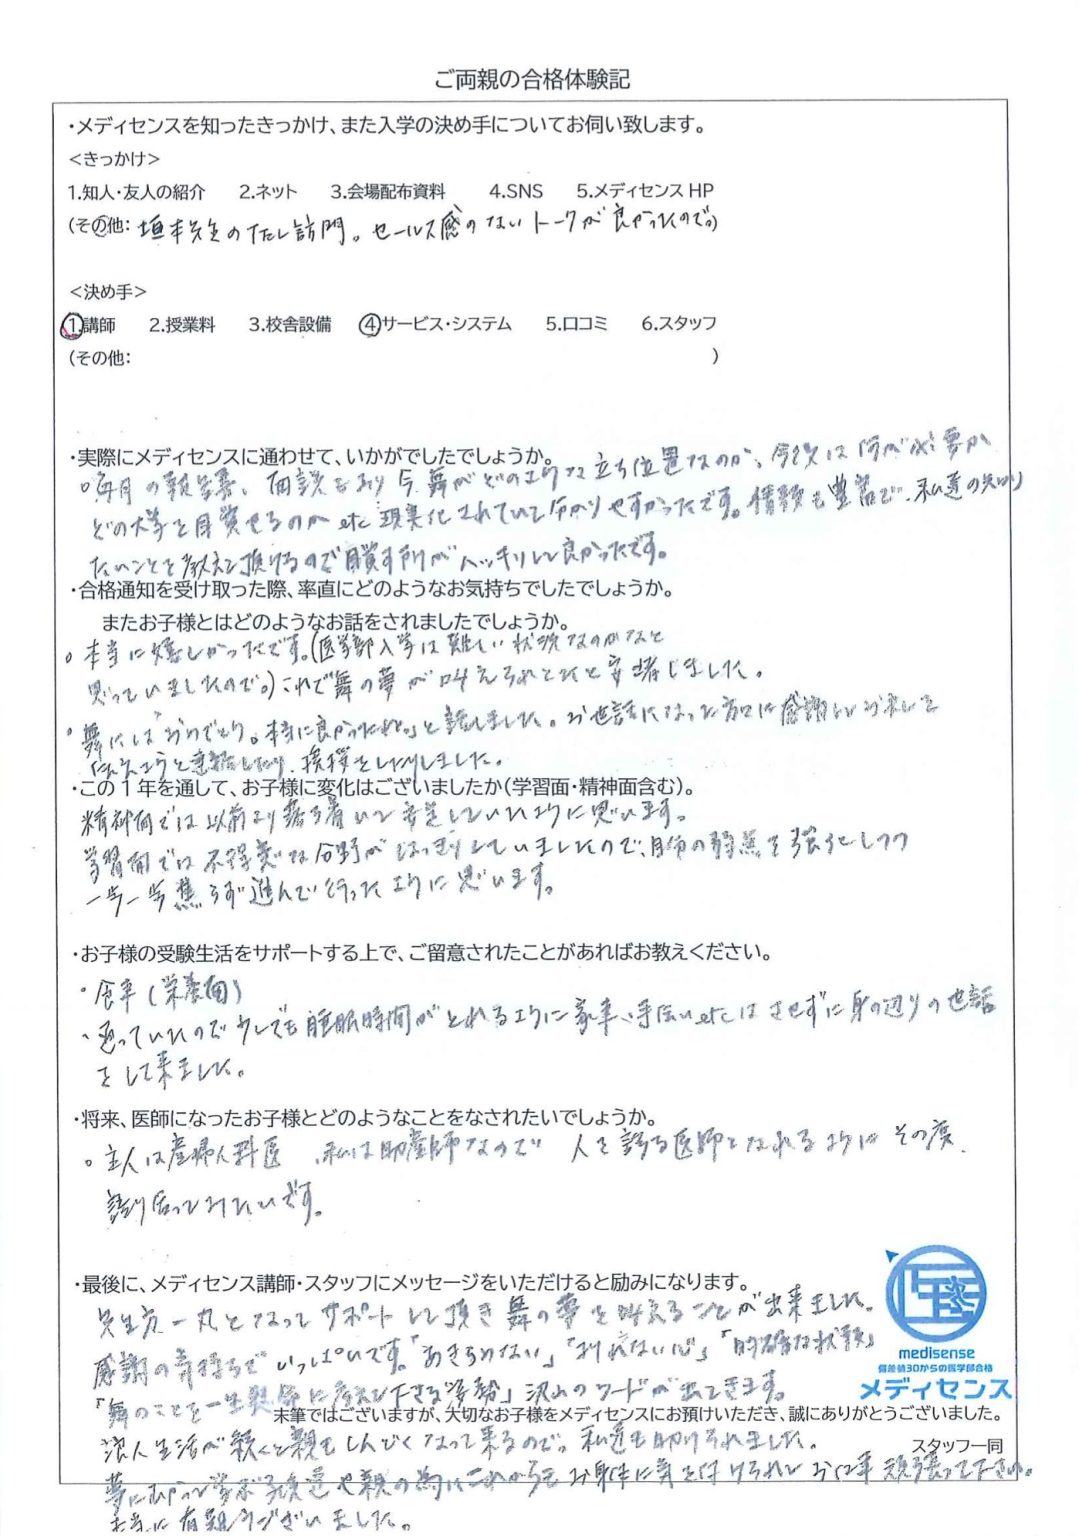 ご両親の合格体験記
・メディセンスを知ったきっかけ、また入学の決め手についてお伺い致します。
＜きっかけ＞
1.知人・友人の紹介 2.ネット 3.会場配布資料 4.SNS 5.メディセンス HP
(その他: 垣本先生の 訪問。セールス感のないトークが良かったので。)
＜決め手＞
①講師 2.授業料 3.校舎設備 ④サービス・システム 5.口コミ 6.スタッフ
(その他: )
・実際にメディセンスに通わせて、いかがでしたでしょうか。
○毎月の報告書、面談もあり今舞がどのような立ち位置なのか、今後は何が必要か
どの大学を目指せるのか etc 現実化されていて分かりやすかったです。情報も豊富で、私達の知り
たいことを教えて頂けるので目指す所がハッキリして良かったです。
・合格通知を受け取った際、率直にどのようなお気持ちでしたでしょうか。
またお子様とはどのようなお話をされましたでしょうか。
○本当に嬉しかったです。(医学部入学は難しい状況なのかなと
思っていましたので。)これで舞の夢が叶えられたと安堵しました。
○舞には「おめでとう。本当に良かったね。」と話しました。お世話になった方々に感謝しお礼を
伝えようと連絡したり、挨拶をしたりしました。
・この 1 年を通して、お子様に変化はございましたか(学習面・精神面含む)。
精神面では以前より落ち着いて安定していたように思います。
学習面では不得意な分野がはっきりしていましたので、自分の弱点を強化しつつ
一歩一歩焦らず進んで行ったように思います。
・お子様の受験生活をサポートする上で、ご留意されたことがあればお教えください。
○食事(栄養面)
、通っていたので少しでも睡眠時間がとれるように家事、手伝い etc はさせずに身の辺りの世話
をして来ました。
・将来、医師になったお子様とどのようなことをなされたいでしょうか。
○主人は産婦人科医、私は助産師なので 人を診る医師となれるように その度、
語り合ってみたいです。
・最後に、メディセンス講師・スタッフにメッセージをいただけると励みになります。
先生方一丸となってサポートして頂き舞の夢を叶えることが出来ました。
感謝の気持ちでいっぱいです。「あきらめない」「折れない心」「的確な状報」
「舞のことを一生懸命に考えて下さる姿勢」沢山のワードが出てきます。
末筆ではございますが、大切なお子様をメディセンスにお預けいただき、誠にありがとうございました。
浪人生活が続くと親もしんどくなって来るので。私達も助けられました。
スタッフ一同
夢にむかって学ぶ子供達や親の為にこれからもお身体に気を付けられて お仕事頑張って下さい。
本当に有難うございました。
medisense
偏差値30からの医学部合格
メディセンス